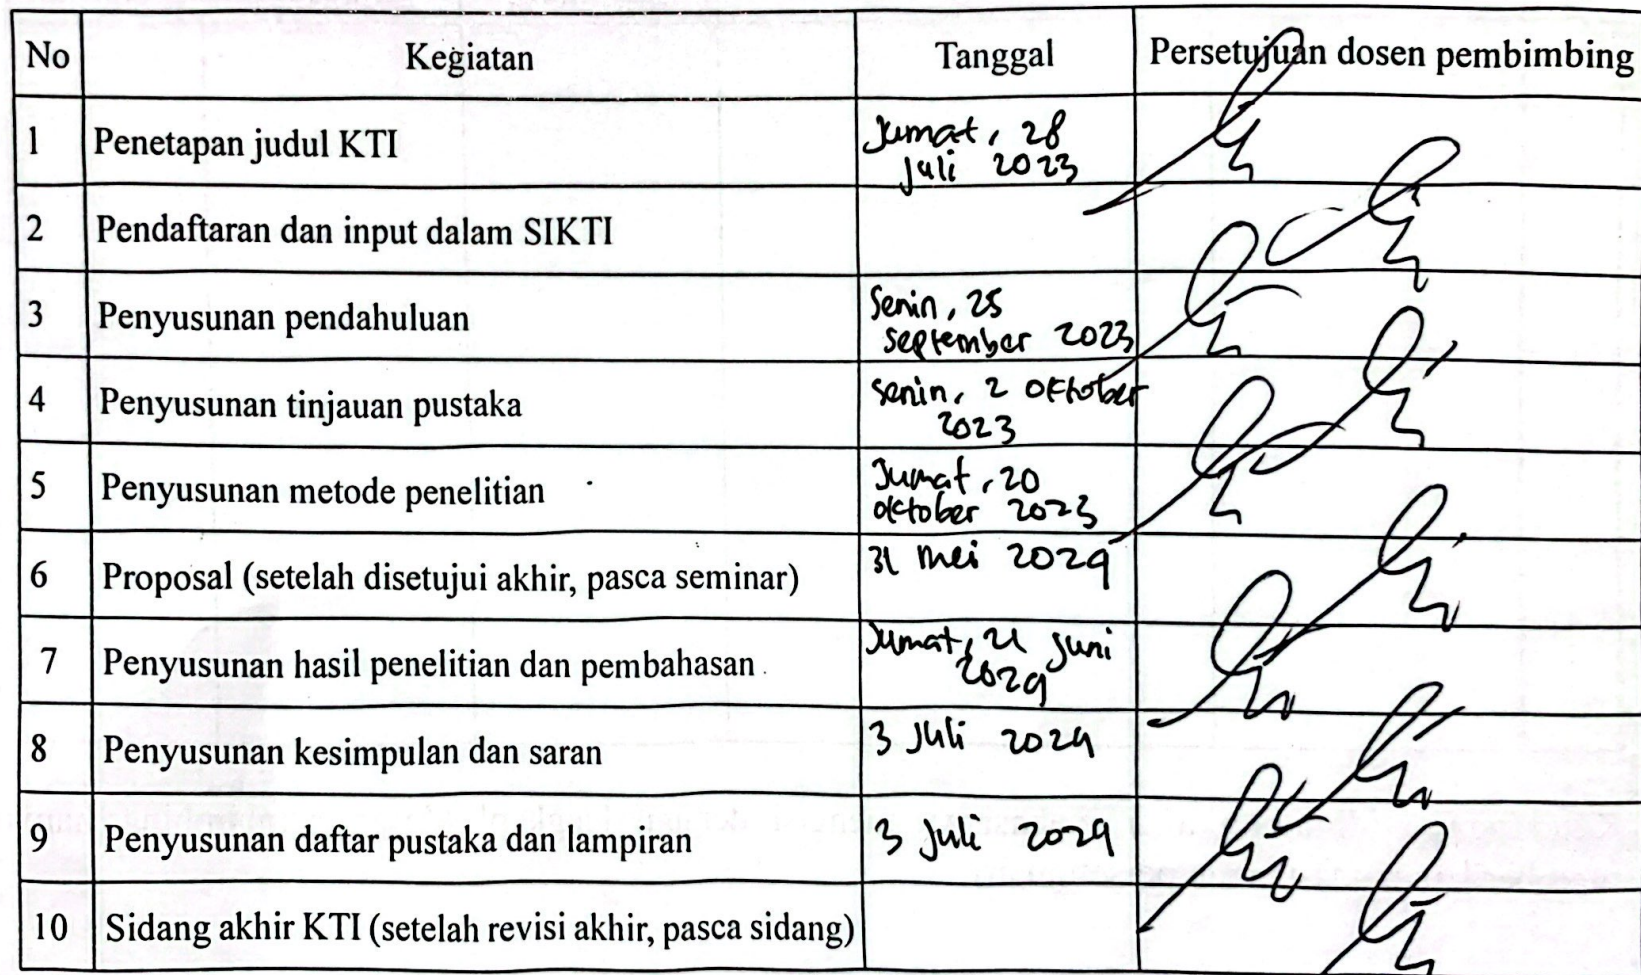 No Kegiatan Tanggal Persetujuan dosen pembimbing
1 Penetapan judul KTI Jumat, 28
Juli 2023
2 Pendaftaran dan input dalam SIKTI
3 Penyusunan pendahuluan Senin, 25
September 2023
4 Penyusunan tinjauan pustaka Senin, 2 Oktober
2023
5 Penyusunan metode penelitian Jumat, 20
Oktober 2023
6 Proposal (setelah disetujui akhir, pasca seminar) 31 Mei 2024
7 Penyusunan hasil penelitian dan pembahasan Jumat, 21 Juni
2024
8 Penyusunan kesimpulan dan saran 3 Juli 2024
9 Penyusunan daftar pustaka dan lampiran 3 Juli 2024
10 Sidang akhir KTI (setelah revisi akhir, pasca sidang)